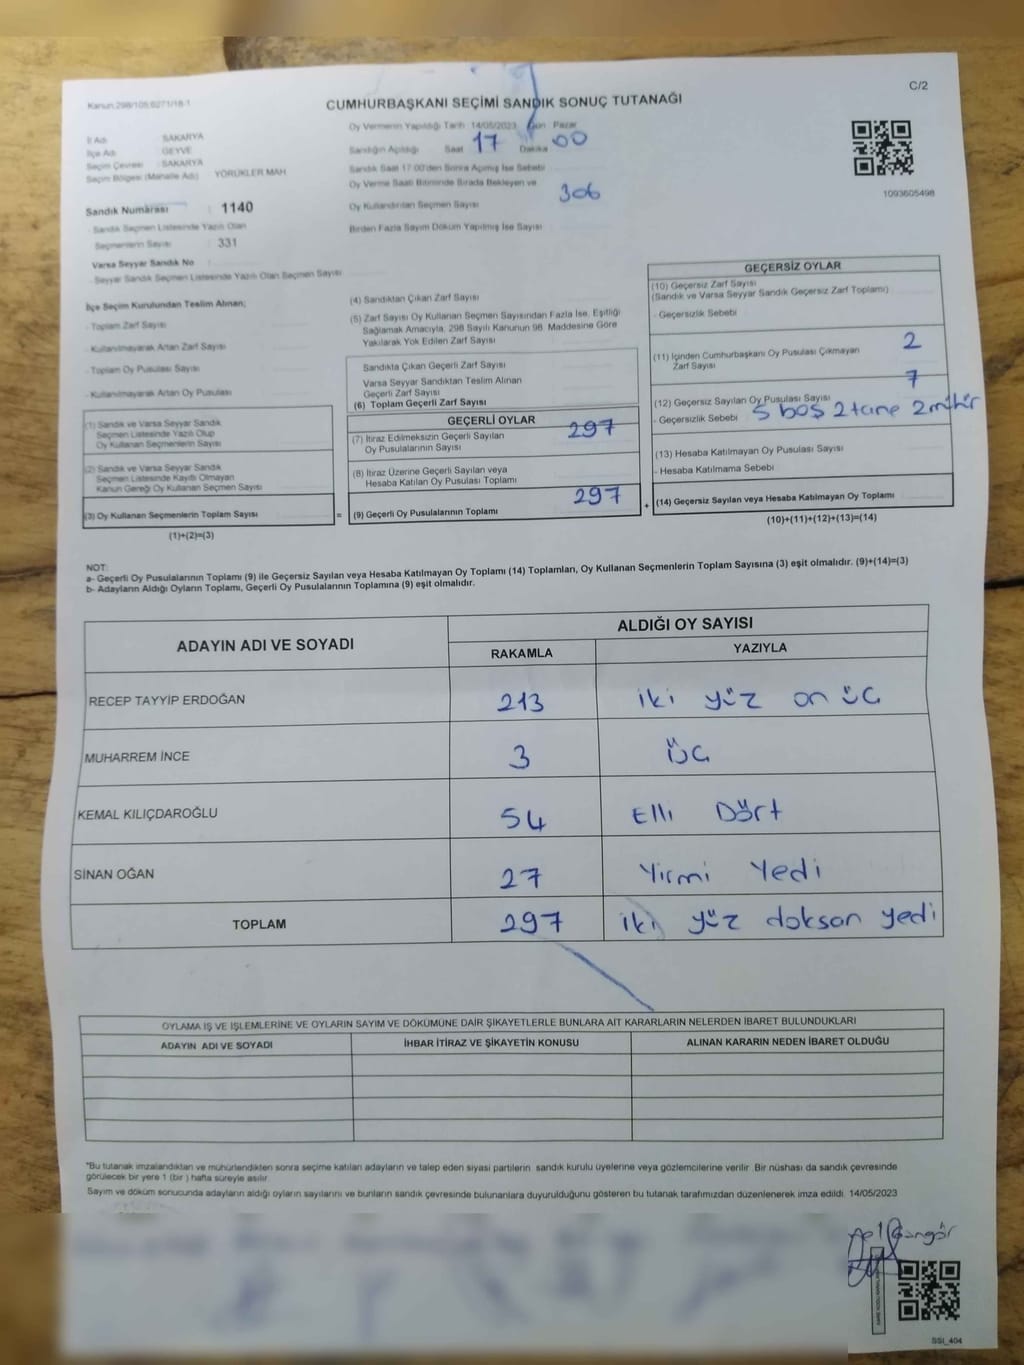 Kanun:298/105;6271/18-1
C/2
CUMHURBAŞKANI SEÇİMİ SANDIK SONUÇ TUTANAĞI
İl Adı SAKARYA
İlçe Adı GEYVE
Seçim Çevresi : SAKARYA
Seçim Bölgesi (Mahalle Adı) YÖRÜKLER MAH
Sandık Numarası : 1140
- Sandık Seçmen Listesinde Yazılı Olan
Seçmenlerin Sayısı : 331
Varsa Seyyar Sandık No
- Seyyar Sandık Seçmen Listesinde Yazılı Olan Seçmen Sayısı
Oy Vermenin Yapıldığı Tarih 14/05/2023 Gün Pazar
Sandığın Açıldığı Saat 17 Dakika 00
Sandık Saat 17:00'den Sonra Açılmış İse Sebebi
Oy Verme Saati Bitiminde Sırada Bekleyen ve
Oy Kullandırılan Seçmen Sayısı 306
Birden Fazla Sayım Döküm Yapılmış İse Sayısı
1093605498
İlçe Seçim Kurulundan Teslim Alınan;
- Toplam Zarf Sayısı
- Kullanılmayarak Artan Zarf Sayısı
- Toplam Oy Pusulası Sayısı
- Kullanılmayarak Artan Oy Pusulası
(1) Sandık ve Varsa Seyyar Sandık
Seçmen Listesinde Yazılı Olup
Oy Kullanan Seçmenlerin Sayısı
(2) Sandık ve Varsa Seyyar Sandık
Seçmen Listesinde Kayıtlı Olmayan
Kanun Gereği Oy Kullanan Seçmen Sayısı
(3) Oy Kullanan Seçmenlerin Toplam Sayısı
(1)+(2)=(3)
(4) Sandıktan Çıkan Zarf Sayısı
(5) Zarf Sayısı Oy Kullanan Seçmen Sayısından Fazla İse, Eşitliği
Sağlamak Amacıyla, 298 Sayılı Kanunun 98. Maddesine Göre
Yakılarak Yok Edilen Zarf Sayısı
Sandıkta Çıkan Geçerli Zarf Sayısı
Varsa Seyyar Sandıktan Teslim Alınan
Geçerli Zarf Sayısı
(6) Toplam Geçerli Zarf Sayısı
GEÇERLİ OYLAR
(7) İtiraz Edilmeksizin Geçerli Sayılan
Oy Pusulalarının Sayısı 297
(8) İtiraz Üzerine Geçerli Sayılan veya
Hesaba Katılan Oy Pusulası Toplamı
= (9) Geçerli Oy Pusulalarının Toplamı 297
GEÇERSİZ OYLAR
(10) Geçersiz Zarf Sayısı
(Sandık ve Varsa Seyyar Sandık Geçersiz Zarf Toplamı)
- Geçersizlik Sebebi
(11) İçinden Cumhurbaşkanı Oy Pusulası Çıkmayan 2
Zarf Sayısı
7
(12) Geçersiz Sayılan Oy Pusulası Sayısı
- Geçersizlik Sebebi 5 boş 2 tane 2 mühür
(13) Hesaba Katılmayan Oy Pusulası Sayısı
- Hesaba Katılmama Sebebi
+ (14) Geçersiz Sayılan veya Hesaba Katılmayan Oy Toplamı
(10)+(11)+(12)+(13)=(14)
NOT:
a- Geçerli Oy Pusulalarının Toplamı (9) ile Geçersiz Sayılan veya Hesaba Katılmayan Oy Toplamı (14) Toplamları, Oy Kullanan Seçmenlerin Toplam Sayısına (3) eşit olmalıdır. (9)+(14)=(3)
b- Adayların Aldığı Oyların Toplamı, Geçerli Oy Pusulalarının Toplamına (9) eşit olmalıdır.
ADAYIN ADI VE SOYADI
ALDIĞI OY SAYISI
RAKAMLA YAZIYLA
RECEP TAYYİP ERDOĞAN 213 iki yüz on üç
MUHARREM İNCE 3 üç
KEMAL KILIÇDAROĞLU 54 Elli Dört
SİNAN OĞAN 27 Yirmi Yedi
TOPLAM 297 iki yüz doksan yedi
OYLAMA İŞ VE İŞLEMLERİNE VE OYLARIN SAYIM VE DÖKÜMÜNE DAİR ŞİKAYETLERLE BUNLARA AİT KARARLARIN NELERDEN İBARET BULUNDUKLARI
ADAYIN ADI VE SOYADI İHBAR İTİRAZ VE ŞİKAYETİN KONUSU ALINAN KARARIN NEDEN İBARET OLDUĞU
*Bu tutanak imzalandıktan ve mühürlendikten sonra seçime katılan adayların ve talep eden siyasi partilerin sandık kurulu üyelerine veya gözlemcilerine verilir. Bir nüshası da sandık çevresinde
görülecek bir yere 1 (bir) hafta süreyle asılır.
Sayım ve döküm sonucunda adayların aldığı oyların sayılarını ve bunların sandık çevresinde bulunanlara duyurulduğunu gösteren bu tutanak tarafımızdan düzenlenerek imza edildi. 14/05/2023
SSI_404